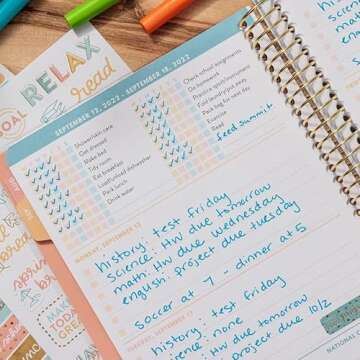 RELAX
read
GOAL
SEPTEMBER 12, 2022 - SEPTEMBER 18, 2022
Shower/skin care
Get dressed
Make bed
Tidy room
Eat breakfast
Load/unload dishwasher
Pack lunch
Drink water
Check school assignments
Do homework
Practice sport/instrument
Fold laundry/put away
Pack bag for next day
Exercise
Read
feed summit
MONDAY, SEPTEMBER 12
history: test friday
science: HW due tomorrow
math: HW due wednesday
english: project due tuesday
soccer at 7 - dinner at 5
history: test friday
science: none
HW due tomorrow
project due 10/2
MAKE
TODAY
GREAT
NATIONAL